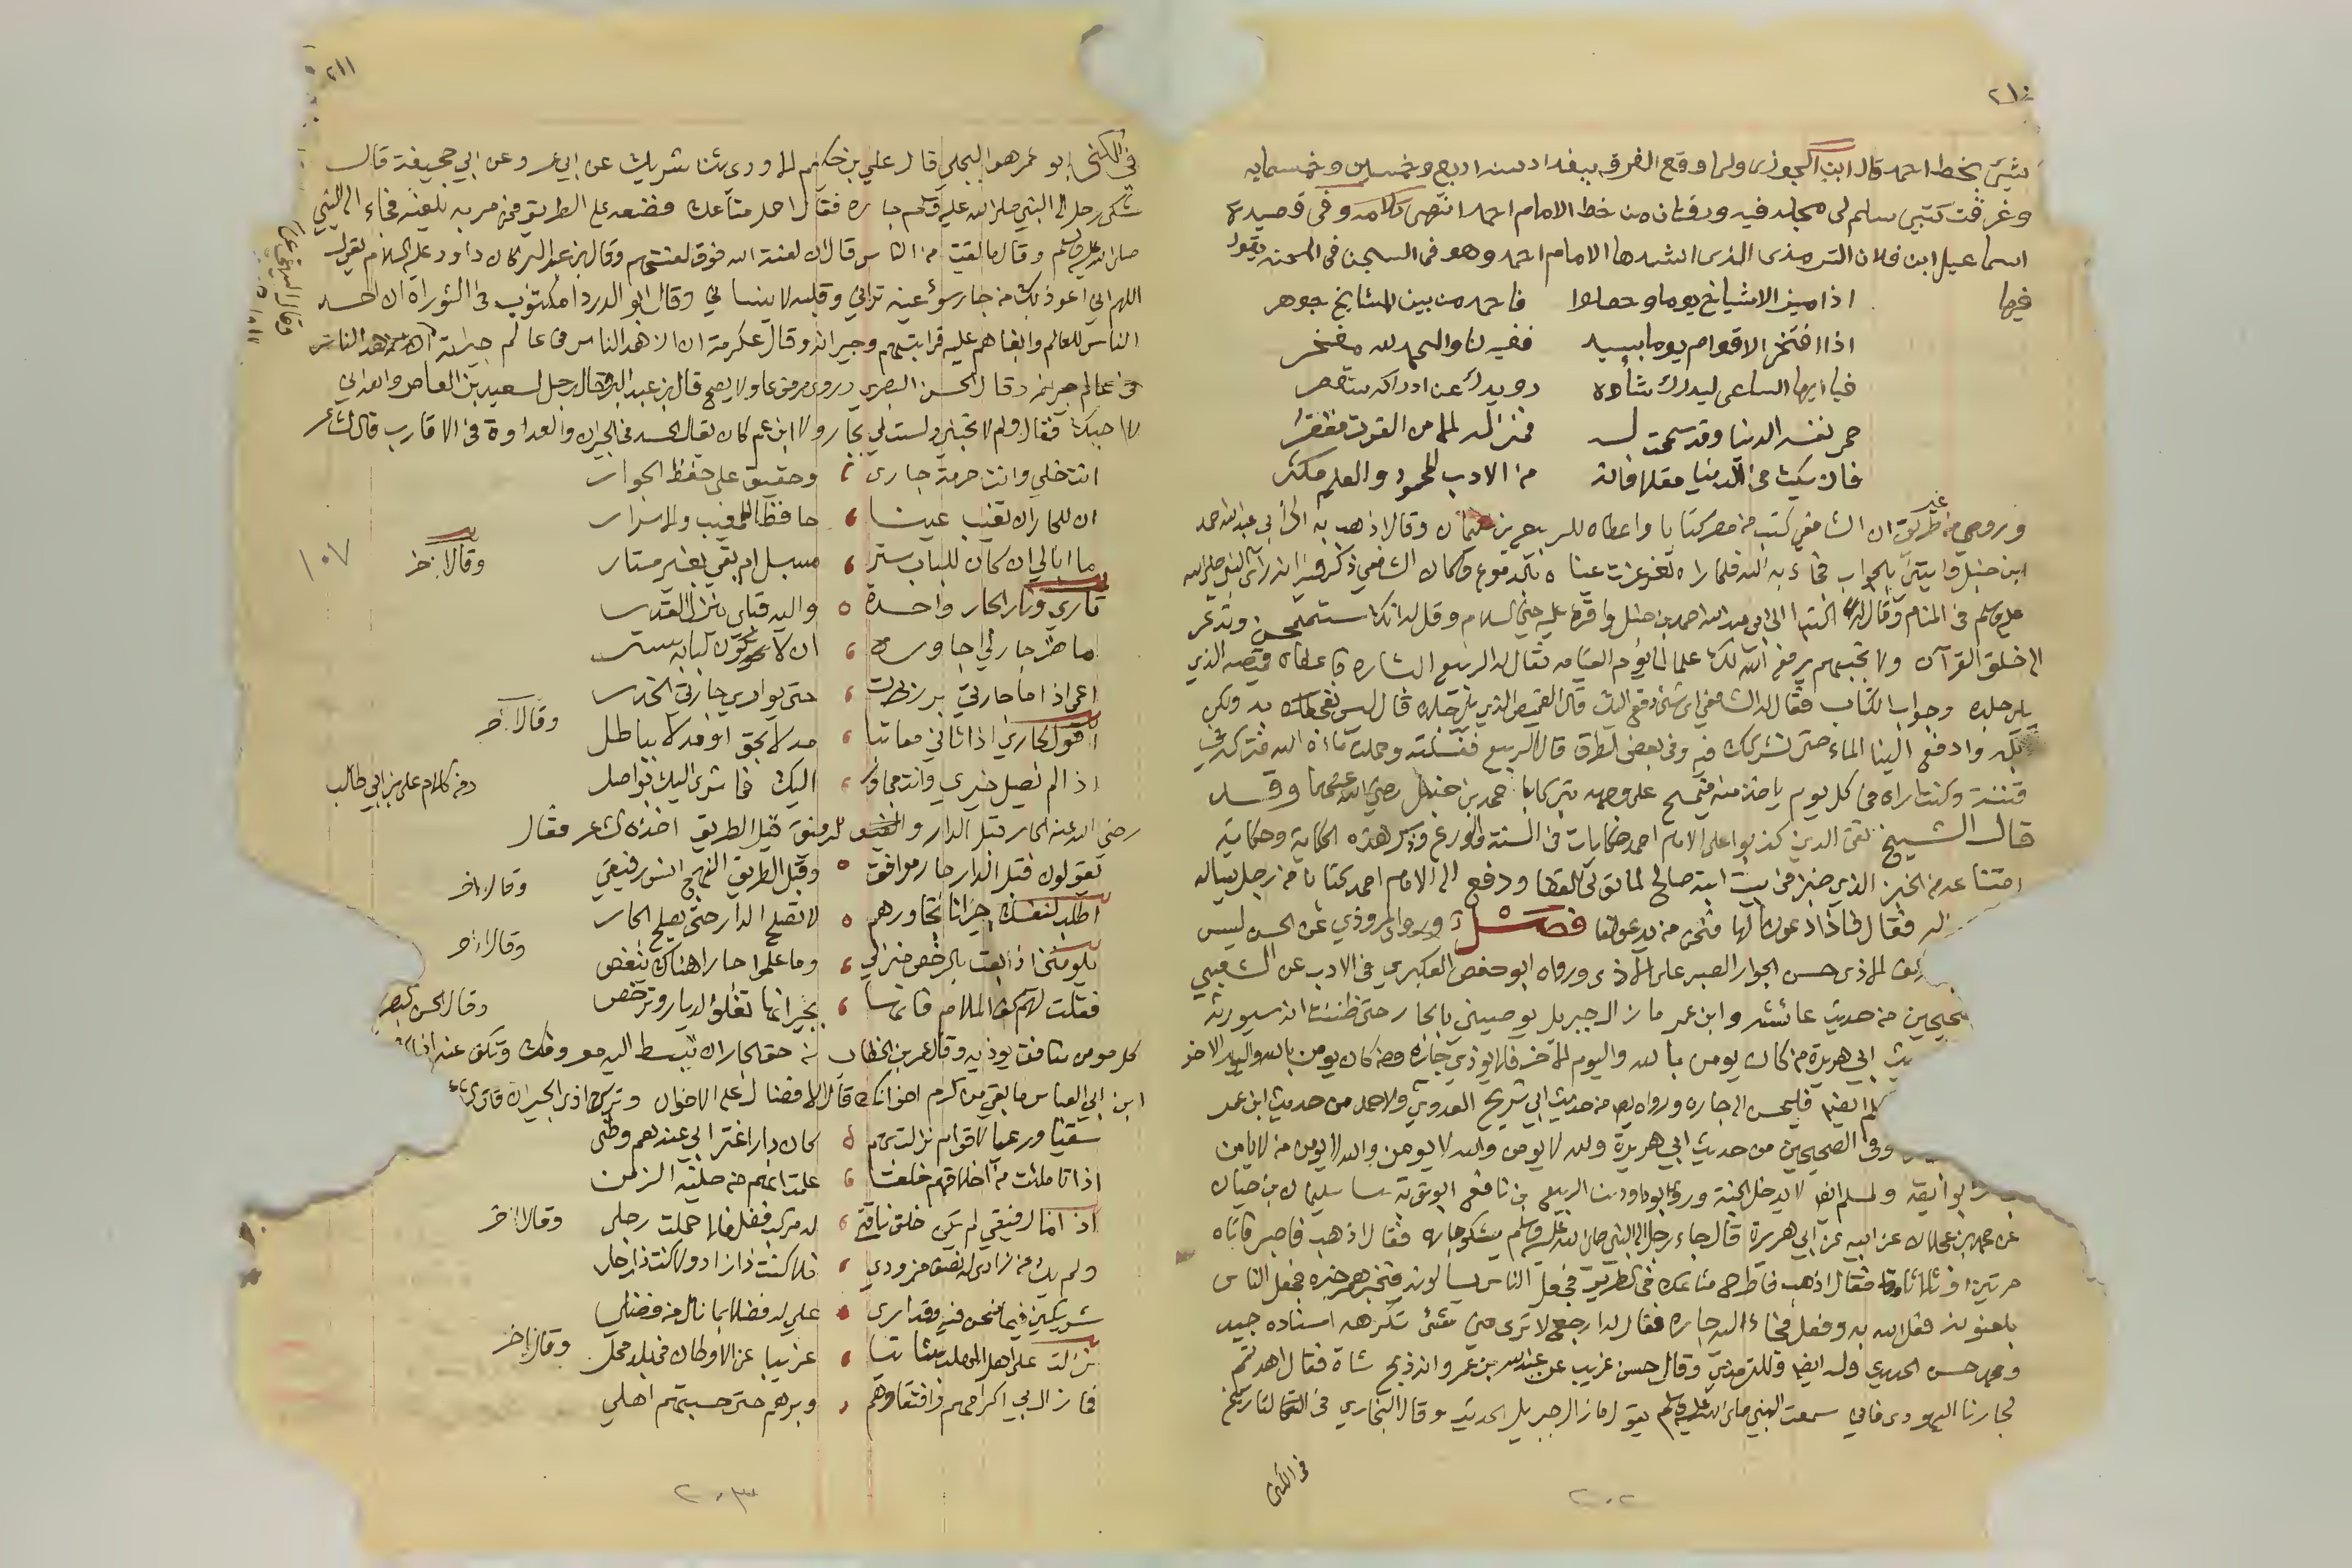 ٢١٠
بشئ بخط احمد قال ابن الجوزى ولما وقع الغرق ببغداد سنة اربع وخمسين وخمسمايه
وغرقت كتبي سلم لى مجلد فيه ورقتان من خط الامام احمد انتهى كلامه وفى قصيدة
اسماعيل ابن فلان الترمذى الذى انشدها الامام احمد وهو فى السجن فى المحنة يقول
فيها
اذا ميز الاشياخ يوما وحصلوا فاحمد من بين المشايخ جوهر
اذا افتخر الاقوام يوما بسيد ففيه لنا والحمد لله مفخر
فيا ايها الساعى ليدرك شأوه رويدك عن ادراكه ستقصر
حمى نفسه الدنيا وقد سمحت له فمنزله الا من القوت مقفر
فان يكن فى الدنيا مقلا فانه من الادب المحمود والعلم مكثر
وروى من غير طريق ان الشافعي كتب من مصر كتابا واعطاه للربيع بن سليمان وقال اذهب به الى ابي عبد الله احمد
ابن حنبل وايتني بالجواب فجاء به اليه فلما قراه تغرغرت عيناه بالدموع وكان الشافعي ذكر فيه انه راى النبي صلى الله
عليه وسلم فى المنام وقال له اكتب الى ابي عبد الله احمد بن حنبل واقرء عليه مني السلام وقل له انك ستمتحن وتدعى
الى خلق القرآن ولا تجبهم يرفع الله لك علما الى يوم القيامة فقال له الربيع البشارة فاعطاه قميصه الذي
يلى جلده وجواب الكتاب فقال له الشافعي اى شئ دفع اليك قال القميص الذي يلى جلده قال ليس نفجعك به ولكن
بله وادفع الينا الماء حتى نشركك فيه وفى بعض الطرق قال الربيع فغسلته وحملت ماءه اليه فتركه فى
قنينة وكنت اراه فى كل يوم ياخذ منه فيمسح على وجهه تبركا باحمد بن حنبل رضي الله عنهما وقد
قال الشيخ تقى الدين كذبوا على الامام احمد حكايات فى السنة والورع وذكر هذه الحكاية وحكاية
امتناعه من الخبز الذي خبز فى بيت ابنه صالح لما تولى القضا ودفع الى الامام احمد كتابا من رجل يساله
له فقال فاذا دعونا لهذا فنحن من يدعو لنا فصل وروى المروذي عن الحسن ليس
كف الاذى حسن الجوار الصبر على الاذى ورواه ابو حفص العكبري فى الادب عن الشعبي
حيحين من حديث عائشه وابن عمر ما زال جبريل يوصيني بالجار حتى ظننت انه سيورثه
يث ابي هريرة من كان يومن بالله واليوم الاخر فلا يوذي جاره ومن كان يومن بالله واليوم الاخر
ايضا فليحسن الى جاره ورواه من حديث ابي شريح العدوي ولاحمد من حديث ابن عمر
وفى الصحيحين من حديث ابي هريرة والله لا يومن والله لا يومن والله لا يومن من لا يامن
بوائقه ولمسلم ايضا لا يدخل الجنة وروى ابو داود ثنا الربيع بن نافع ابو توبة ثنا سليمان بن حيان
عن محمد بن عجلان عن ابيه عن ابي هريرة قال جاء رجل الى النبي صلى الله عليه وسلم يشكو جاره فقال اذهب فاصبر فاتاه
مرتين او ثلاثا فقال اذهب فاطرح متاعك فى الطريق فجعل الناس يسالونه فيخبرهم خبره فجعل الناس
يلعنونه فعل الله به وفعل فجاء اليه جاره فقال له ارجع لا ترى مني شئ تكرهه اسناده جيد
ومحمد حسن الحديث وله ايضا وللترمذي وقال حسن غريب عن عبد الله بن عمر وانه ذبح شاة فقال اهديتم
لجارنا اليهودى فاني سمعت النبي صلى الله عليه وسلم يقول ما زال جبريل الحديث وقال البخاري فى التاريخ
فى الكنى
٢٠٢
٢١١
فى الكنى ابو عمر هو البجلي قال علي بن حكيم الاودي ثنا شريك عن ابي عمر وعن ابي جحيفة قال
شكى رجل الى النبي صلى الله عليه وسلم جاره فقال احمل متاعك فضعه على الطريق فمن مر به يلعنه فجاء الى النبي
صلى الله عليه وسلم وقال ما لقيت من الناس قال ان لعنة الله فوق لعنتهم وقال ابن عبد البر كان داود عليه السلام يقول
اللهم اني اعوذ بك من جار سوء عينه تراني وقلبه لا ينساني وقال ابو الدردا مكتوب فى التوراة ان احسد
الناس للعالم وابغاهم عليه قرابتهم وجيرانه وقال عكرمة ان ازهد الناس فى عالم جيرانه
وقال الحسن البصري وروى مرفوعا ولا يصح قال ابن عبد البر قال رجل لسعيد بن العاص والله اني
لاحبك فقال ولم لا تحبني ولست لي بجار ولا ابن عم كان يقال الحسد فى الجيران والعداوة فى الاقارب قال الشاعر
انت خلي وانت حرمة جارى وحقيق على حفظ الجوار
ان للجار ان تغيب عينا حافظا للمغيب والاسرار
ما ابالي ان كان للباب ستر مسبل ام بقي بغير ستار وقال اخر
ناري ونار الجار واحدة واليه قبلي تنزل القدر
ما ضر جار لي اجاوره ان لا يكون لبابه ستر
اعمى اذا ما جارتي برزت حتى يوارى جارتي الخدر وقال اخر
اقول لجاري اذ اتاني معاتبا مدلا بحق او مدلا بباطل
اذا لم يصل خيري وانت مجاور اليك فما شرى اليك بواصل ومن كلام على بن ابي طالب
رضي الله عنه الجار قبل الدار والرفيق قبل الطريق اخذه الشاعر فقال
يقولون قبل الدار جار موافق وقبل الطريق النهج انس رفيق وقال اخر
اطلب لنفسك جيرانا تجاورهم لا تصلح الدار حتى يصلح الجار وقال اخر
يلومنني اذ بعت بالرخص منزلي وما علموا جارا هناك ينغص
فقلت لهم كفوا الملام فانما بجيرانها تغلو الديار وترخص وقال الحسن البصرى
وقال عمر بن الخطاب من حق الجار ان تبسط اليه معروفك وتكف عنه اذاك
ابن ابي العباس ما بقي من كرم اخوانك قال الافضال على الاخوان وترك اذى الجيران
سقيا ورعيا لاقوام نزلت بهم كان دار اغترابي عندهم وطني
اذا تاملت من اخلاقهم خلقا علمت انهم من حلية الزمن وقال اخر
اذا ما رفيقي لم يكن خلف ناقتي له مركب فضل فلا حملت رجلى
ولم يك من زادى له نصف مزودي فلا كنت ذا زاد ولا كنت ذا رحل
شريكين فيما نحن فيه وقد ارى على له فضلا بما نال من فضلي وقال اخر
نزلت على اهل المهلب شاتيا غريبا عن الاوطان فى بلد محل
فما زال بي اكرامهم وافتقادهم وبرهم حتى حسبتهم اهلي
١٠٧
٢٠٣